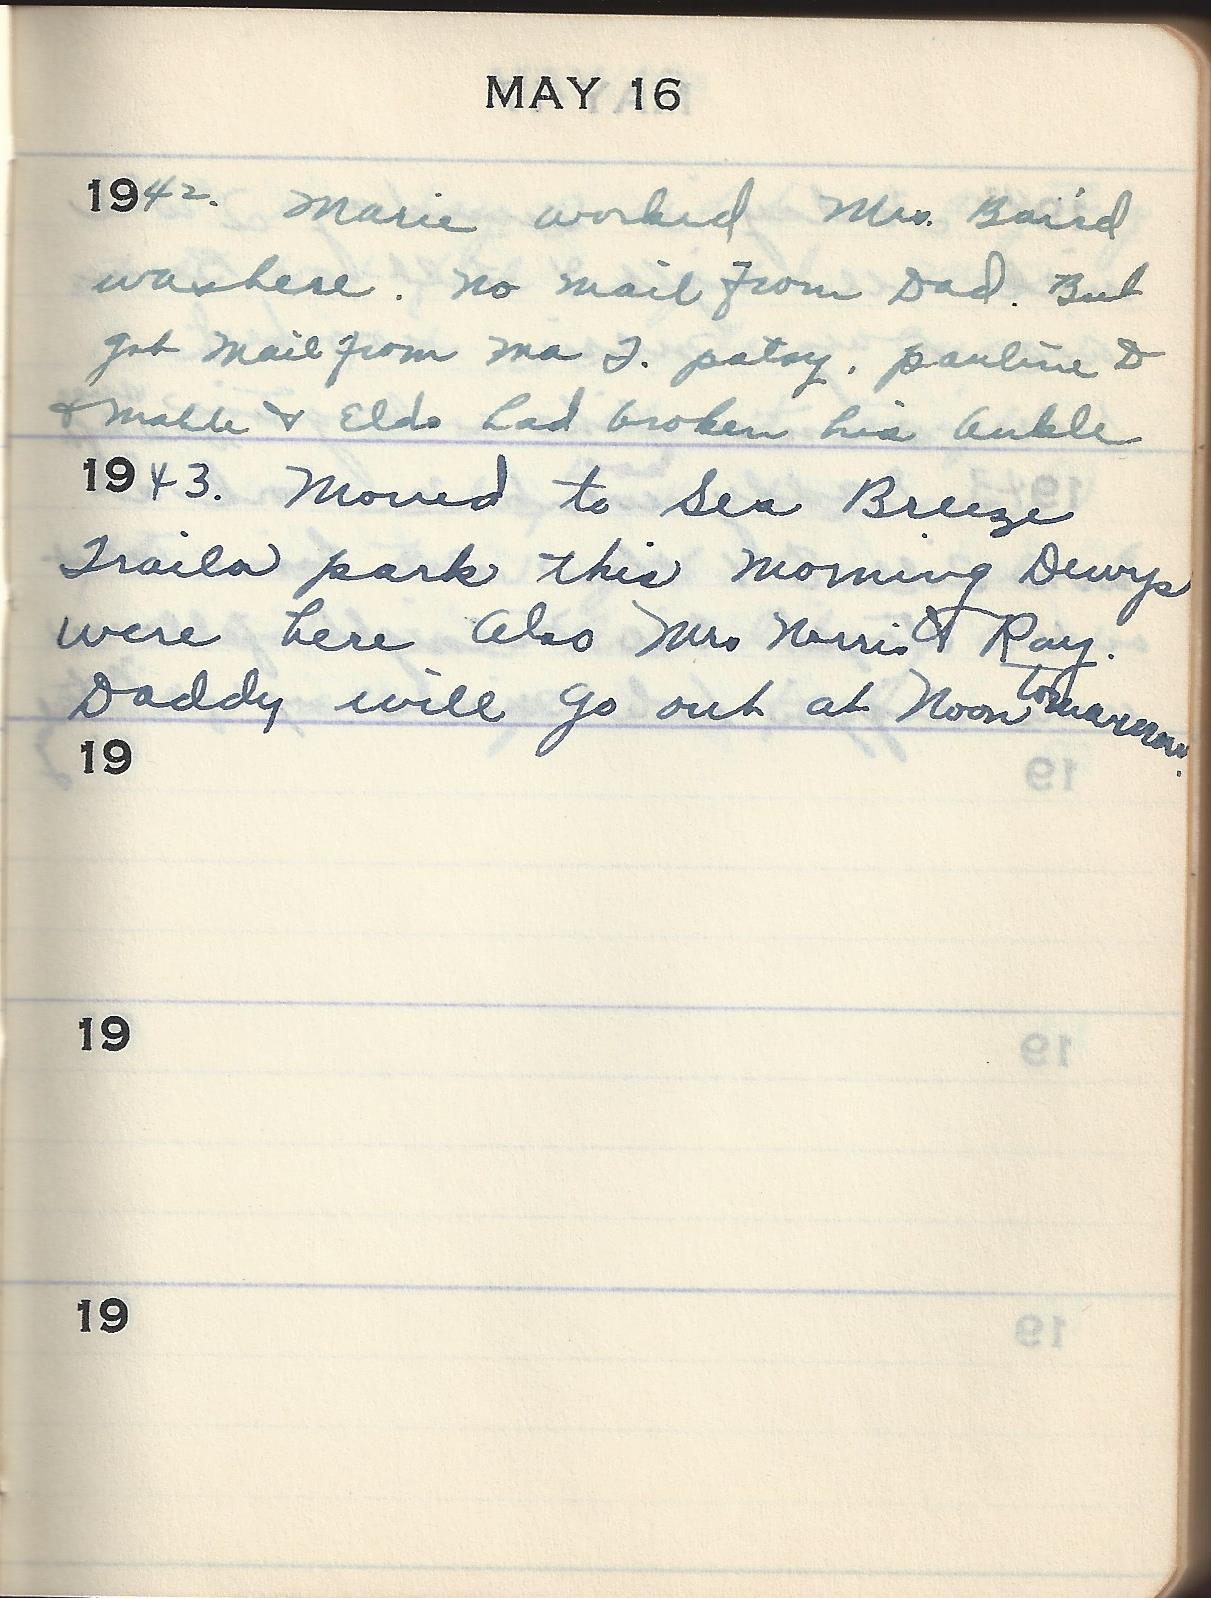 MAY 16
1942. Marie worked Mrs. Baird
was here. No mail from Dad. But
got mail from Ma J. patsy. pauline D
& Mable & Eldo had broken his ankle
1943. Moved to Sea Breeze
Trailor park this morning Dewys
were here also Mrs Norris & Ray.
Daddy will go out at Noon tomarrow.
19
19
19